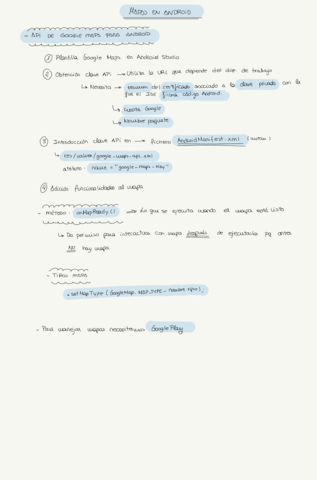 MAPEO EN ANDROID
- API DE GOOGLE MAPS PARA ANDROID
① Plantilla Google Maps en Android Studio
② Obtención clave API → Desde la URL que depende del dir. de trabajo
↳ Necesita → resumen del certificado asociado a la clave privada con la
que el IDE firma código Android.
↳ cuenta Google
↳ Nombre paquete
③ Introducción clave API en → fichero AndroidManifest.xml
↳ res/values/google-maps-api.xml
name = "google-maps-key"
④ Edición funcionalidades al mapa
- método: onMapReady() → Lo que se ejecuta cuando el mapa esté listo
↳ Da permiso para interactuar con mapa después de ejecutarlo pq antes
NO hay mapa
- Tipos maps
• setMapType (GoogleMap.MAP_TYPE_nombre tipo).
- Para manejar mapas necesitamos GooglePlay